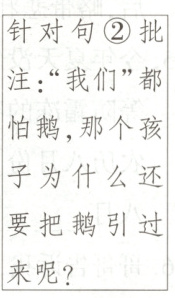 针对句②批
注:“我们”都
怕鹅,那个孩
子为什么还
要把鹅引过
来呢?